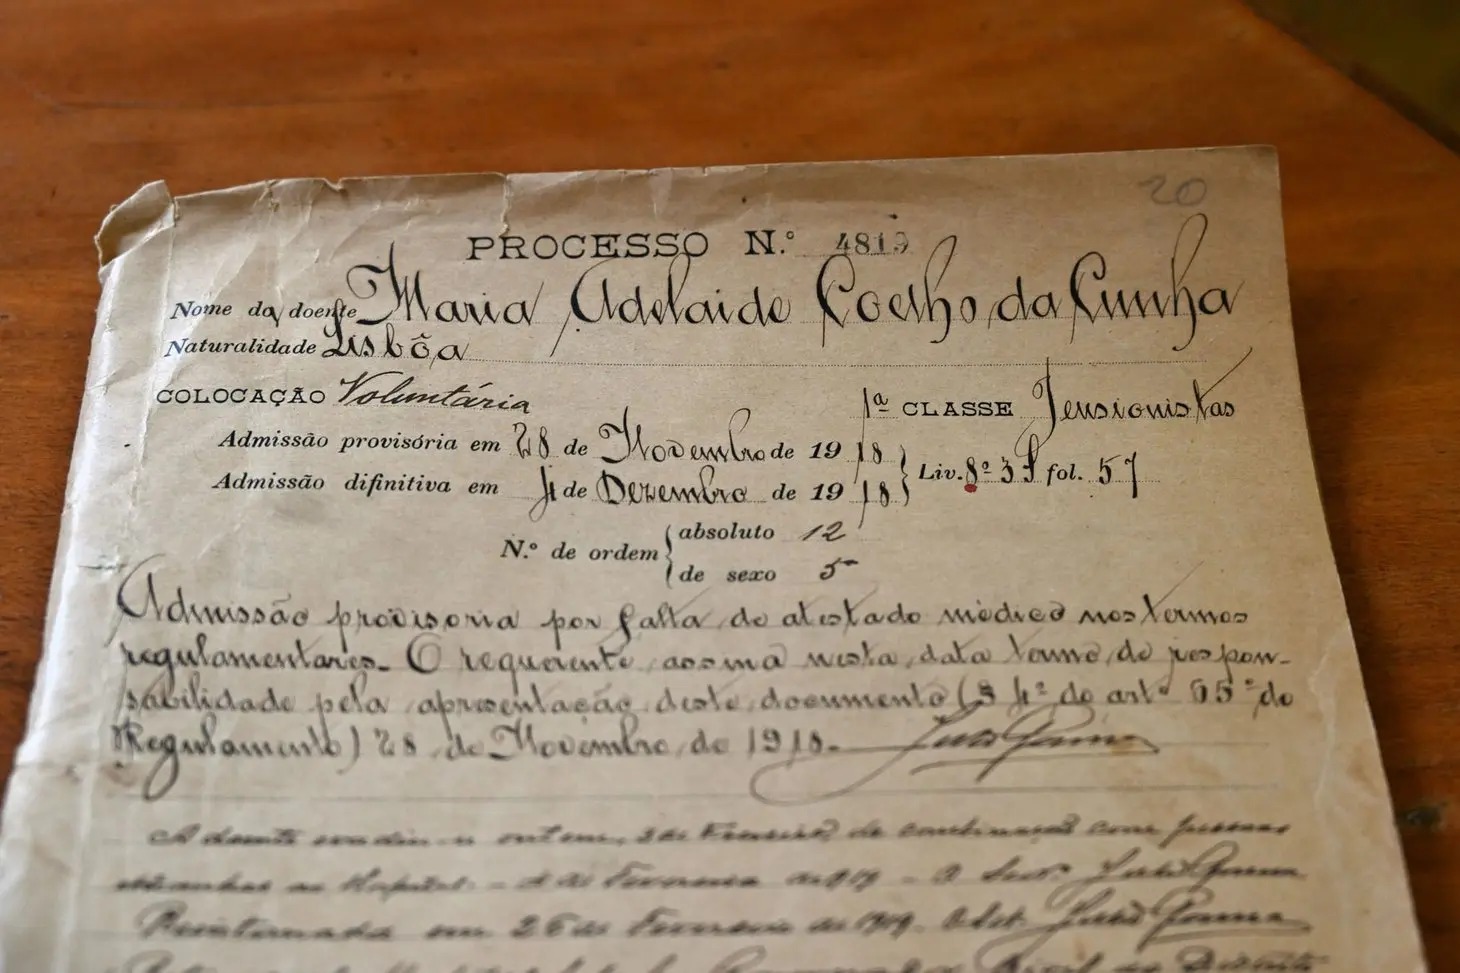 20
PROCESSO N.º 4819
Nome da doente Maria Adelaide Coelho da Cunha
Naturalidade Lisbôa
COLOCAÇÃO Voluntária
1ª CLASSE Pensionistas
Admissão provisória em 28 de Novembro de 1918
Admissão difinitiva em 4 de Dezembro de 1918
Liv. 8º 3º fol. 57
N.º de ordem
absoluto 12
de sexo 5
Admissão provisoria por falta de atestado médico nos termos
regulamentares. O requerente assina nesta data termo de respon-
sabilidade pela apresentação deste documento (§ 4º do artº 65º do
Regulamento) 28 de Novembro de 1918.
A doente evadiu-se ontem, 2 de Fevereiro, de combinação com pessoas
estranhas ao Hospital. de Fevereiro de 1919 - O
Reinternada em 26 de Fevereiro de 1919. O